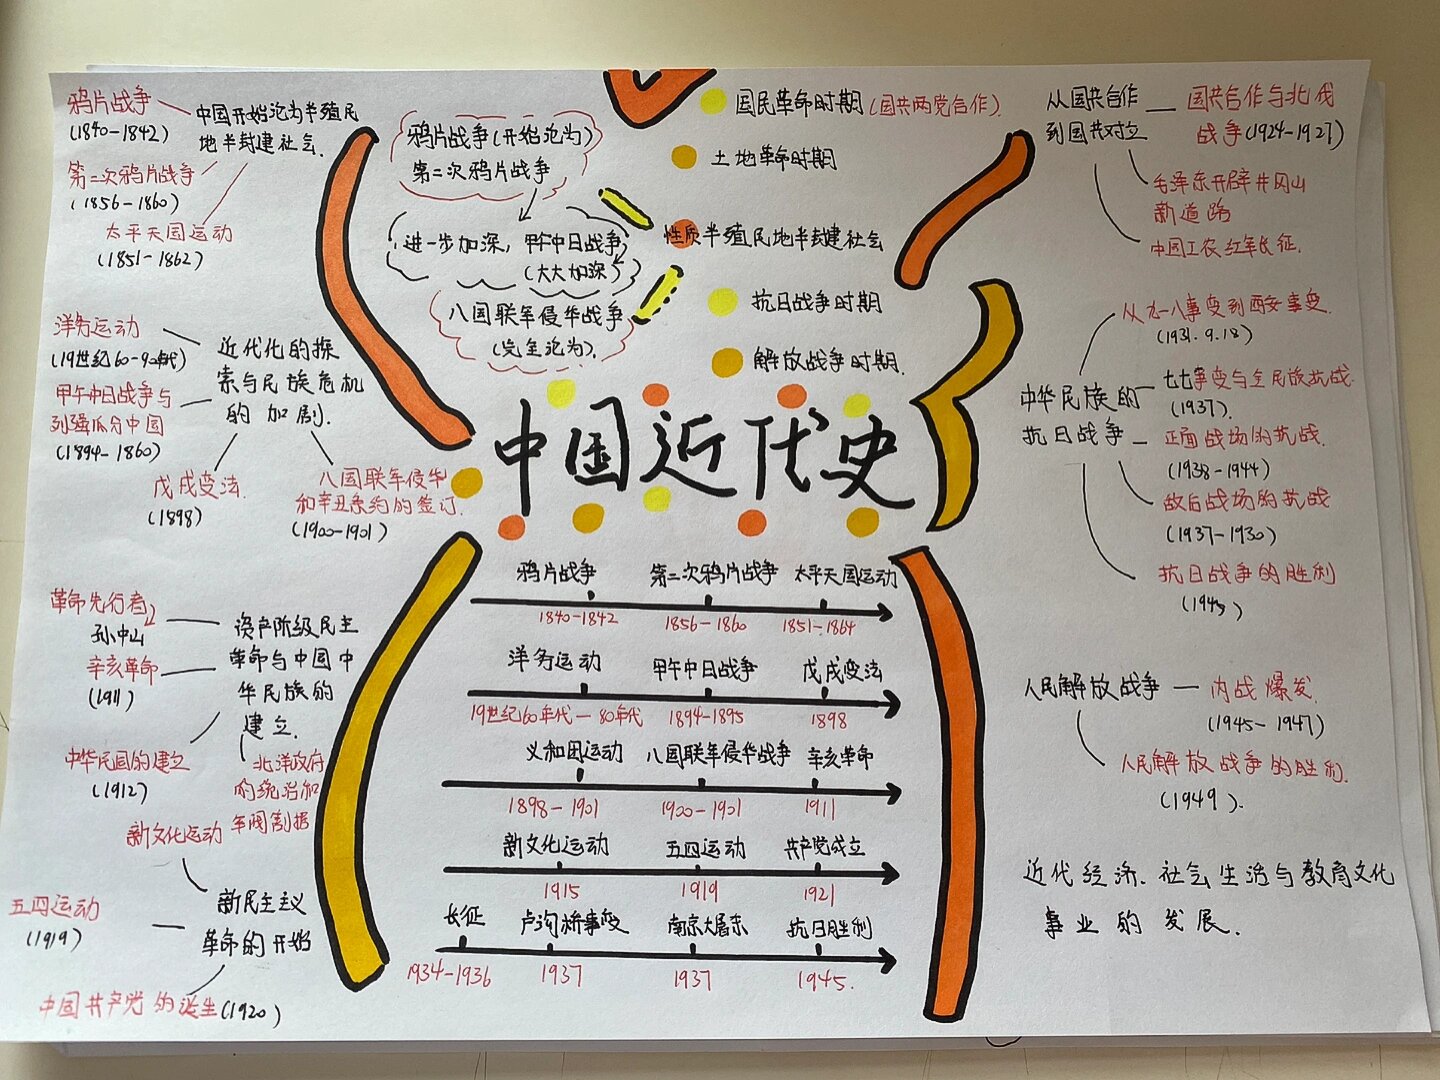 鸦片战争
(1840-1842)
中国开始沦为半殖民
地半封建社会.
第二次鸦片战争
(1856-1860)
太平天国运动
(1851-1862)
洋务运动
(19世纪60-90年代)
近代化的探
索与民族危机
的加剧.
甲午中日战争与
列强瓜分中国
(1894-1860)
戊戌变法.
(1898)
八国联军侵华
和辛丑条约的签订.
(1900-1901)
革命先行者
孙中山
资产阶级民主
革命与中国中
华民族的
建立.
辛亥革命
(1911)
中华民国的建立
(1912)
北洋政府
的统治和
军阀割据
新文化运动
新民主义
革命的开始
五四运动
(1919)
中国共产党的诞生(1920)
鸦片战争(开始沦为)
第二次鸦片战争
进一步加深,甲午中日战争
(大大加深)
八国联军侵华战争
(完全沦为).
国民革命时期(国共两党合作).
土地革命时期
性质半殖民地半封建社会
抗日战争时期
解放战争时期.
中国近代史
鸦片战争 第二次鸦片战争 太平天国运动
1840-1842 1856-1860 1851-1864
洋务运动 甲午中日战争 戊戌变法
19世纪60年代—80年代 1894-1895 1898
义和团运动 八国联军侵华战争 辛亥革命
1898-1901 1900-1901 1911
新文化运动 五四运动 共产党成立
1915 1919 1921
长征 卢沟桥事变 南京大屠杀 抗日胜利
1934-1936 1937 1937 1945.
从国共合作
到国共对立
国共合作与北伐
战争(1924-1927)
毛泽东开辟井冈山
新道路
中国工农红军长征.
从九一八事变到西安事变.
(1931.9.18)
中华民族的
抗日战争
七七事变与全民族抗战.
(1937).
正面战场的抗战.
(1938-1944)
敌后战场的抗战
(1937-1930)
抗日战争的胜利
(1945)
人民解放战争
内战爆发.
(1945-1947)
人民解放战争的胜利.
(1949).
近代经济.社会生活与教育文化
事业的发展.